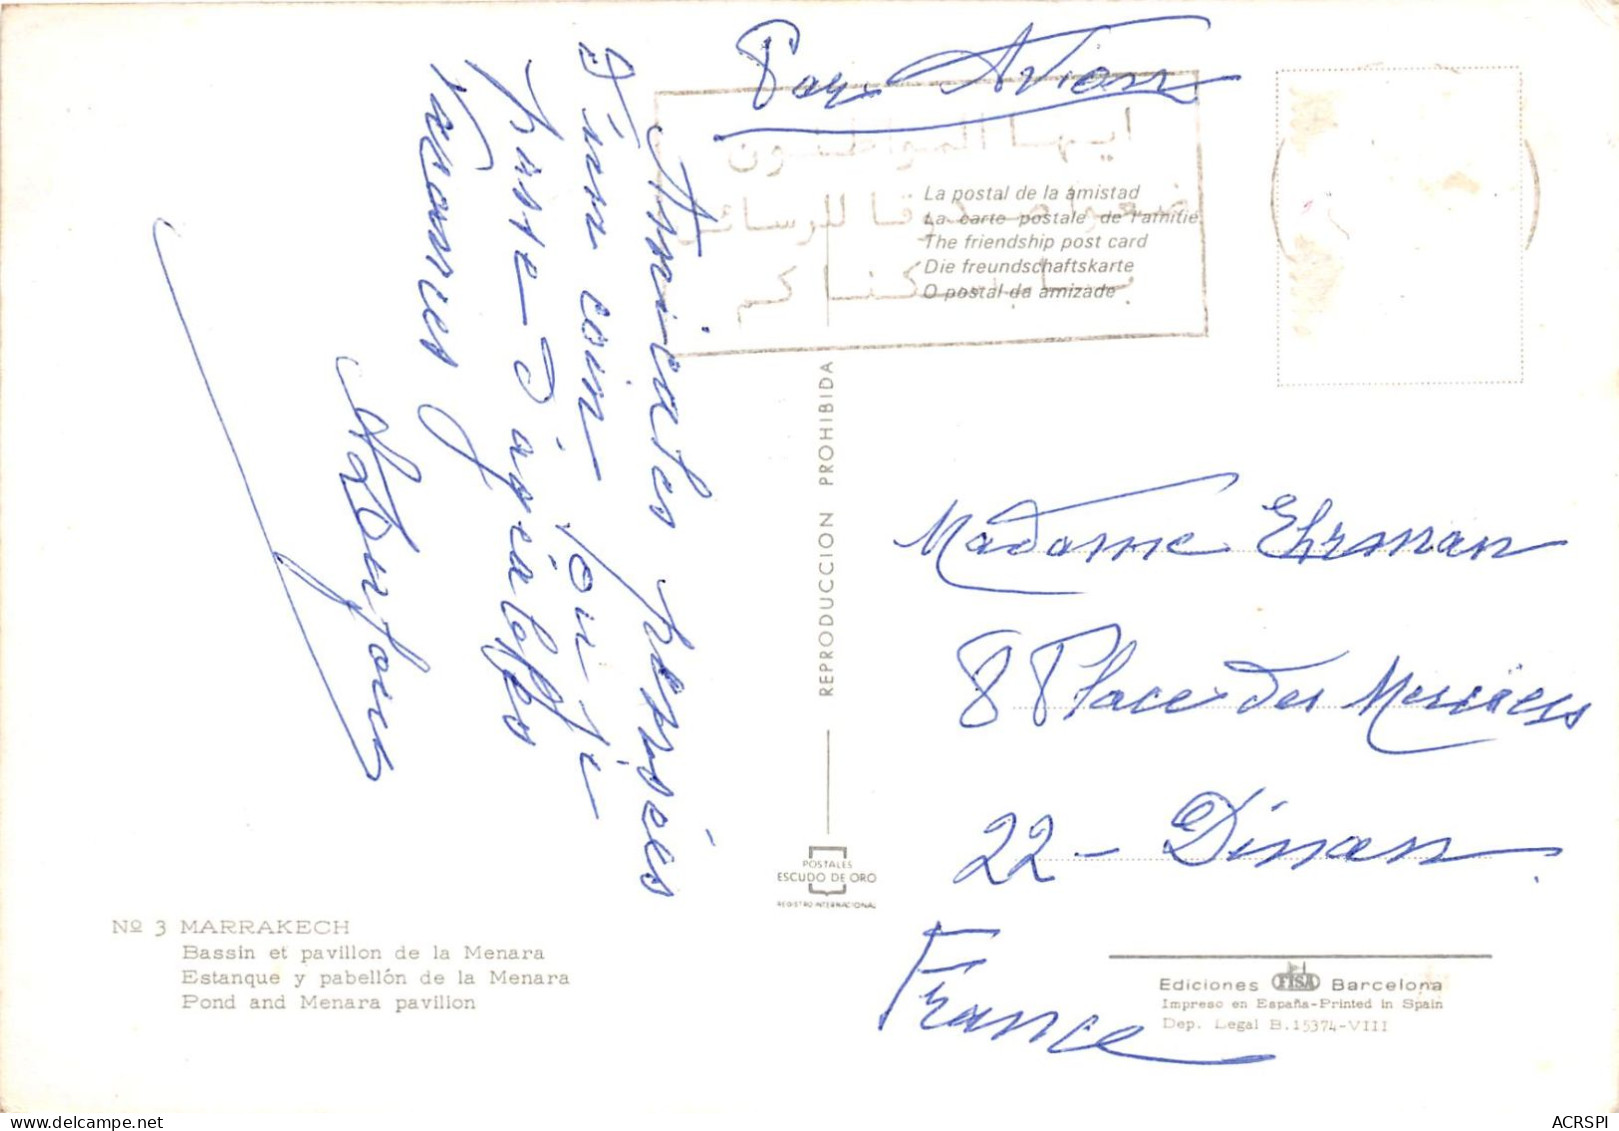 Par Avion
ايها المواطنون
ضعوا صندوقا للرسائل
بمسكناكم
La postal de la amistad
La carte postale de l'amitie
The friendship post card
Die freundschaftskarte
O postal da amizade
Amicales pensées
D'un coin où je
reste d'ascalopes
Vacances
REPRODUCCION PROHIBIDA
Madame Ehrman
8 Place des Merciers
22 - Dinan.
France
POSTALES
ESCUDO DE ORO
REGISTRO INTERNACIONAL
Nº 3 MARRAKECH
Bassin et pavillon de la Menara
Estanque y pabellón de la Menara
Pond and Menara pavillon
Ediciones FISA Barcelona
Impreso en España-Printed in Spain
Dep. Legal B.15374-VIII
ACRSPI